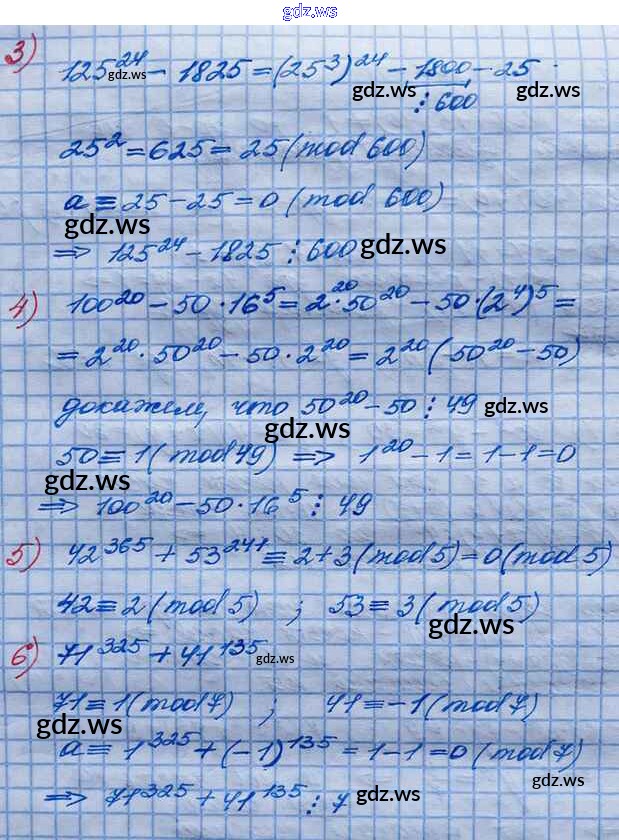 gdz.ws
3) 125²⁴ – 1825 = (25³)²⁴ – 1800 – 25
gdz.ws gdz.ws gdz.ws
⋮ 600
25² = 625 = 25 (mod 600)
a ≡ 25 – 25 = 0 (mod 600)
gdz.ws gdz.ws
⇒ 125²⁴ – 1825 ⋮ 600 gdz.ws gdz.ws
4) 100²⁰ – 50 · 16⁵ = 2²⁰ · 50²⁰ – 50 · (2⁴)⁵ =
= 2²⁰ · 50²⁰ – 50 · 2²⁰ = 2²⁰ (50²⁰ – 50)
докажем, что 50²⁰ – 50 ⋮ 49 gdz.ws
gdz.ws
50 ≡ 1 (mod 49) ⇒ 1²⁰ – 1 = 1 – 1 = 0
gdz.ws
⇒ 100²⁰ – 50 · 16⁵ ⋮ 49
5) 42³⁶⁵ + 53²⁴¹ ≡ 2 + 3 (mod 5) = 0 (mod 5)
42 ≡ 2 (mod 5) ; 53 ≡ 3 (mod 5)
gdz.ws
6) 71³²⁵ + 41¹³⁵ gdz.ws
71 ≡ 1 (mod 7) ; 41 ≡ –1 (mod 7)
gdz.ws
a ≡ 1³²⁵ + (–1)¹³⁵ = 1 – 1 = 0 (mod 7)
gdz.ws
⇒ 71³²⁵ + 41¹³⁵ ⋮ 7 gdz.ws